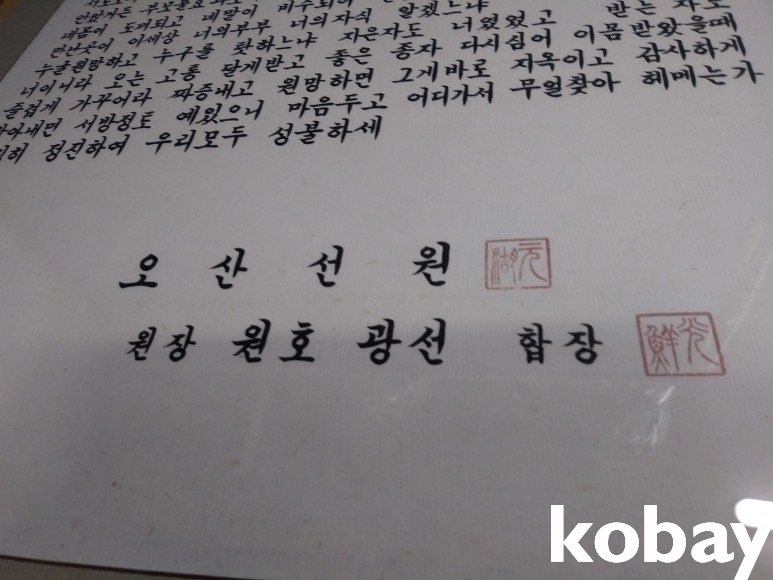 만날거는 부모몸도
네몸이 도마되고 네말이 비수되어
만난곳이 이세상 너의부부 너의자식 알겠느냐 받는 자도
누굴원망하고 누구를 탓하느냐 지은자도 너였었고
너이니라 오는 고통 달게받고 좋은 종자 다시심어 이몸 받았을때
즐겁게 가꾸어라 짜증내고 원망하면 그게바로 지옥이고 감사하게
아내면 서방정토 예있으니 마음두고 어디가서 무얼찾아 헤메는가
히 정진하여 우리모두 성불하세
오 산 선 원 元湖
원장 원호 광선 합장 光鮮
kobay